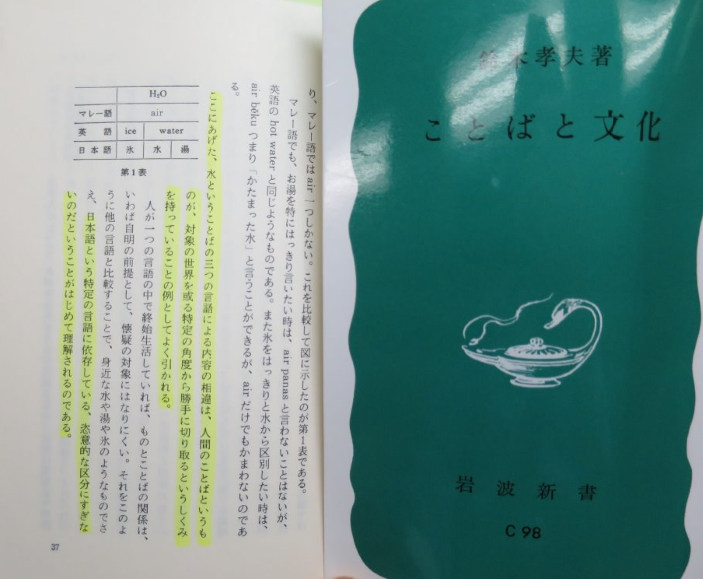 り、マレー語では air 一つしかない。これを比較して図に示したのが第1表である。
マレー語でも、お湯を特にはっきり言いたい時は、air panas と言わないことはないが、
英語の hot water と同じようなものである。また氷をはっきりと水から区別したい時は、
air bĕku つまり「かたまった水」と言うことができるが、air だけでもかまわないのであ
る。
ここにあげた、水ということばの三つの言語による内容の相違は、人間のことばというも
のが、対象の世界を或る特定の角度から勝手に切り取るというしくみ
を持っていることの例としてよく引かれる。
人が一つの言語の中で終始生活していれば、ものとことばの関係は、
いわば自明の前提として、懐疑の対象にはなりにくい。それをこのよ
うに他の言語と比較することで、身近な水や湯や氷のようなものでさ
え、日本語という特定の言語に依存している、恣意的な区分にすぎな
いのだということがはじめて理解されるのである。
H₂O
マレー語 air
英語 ice water
日本語 氷 水 湯
第1表
37
鈴木孝夫著
ことばと文化
岩波新書
C 98